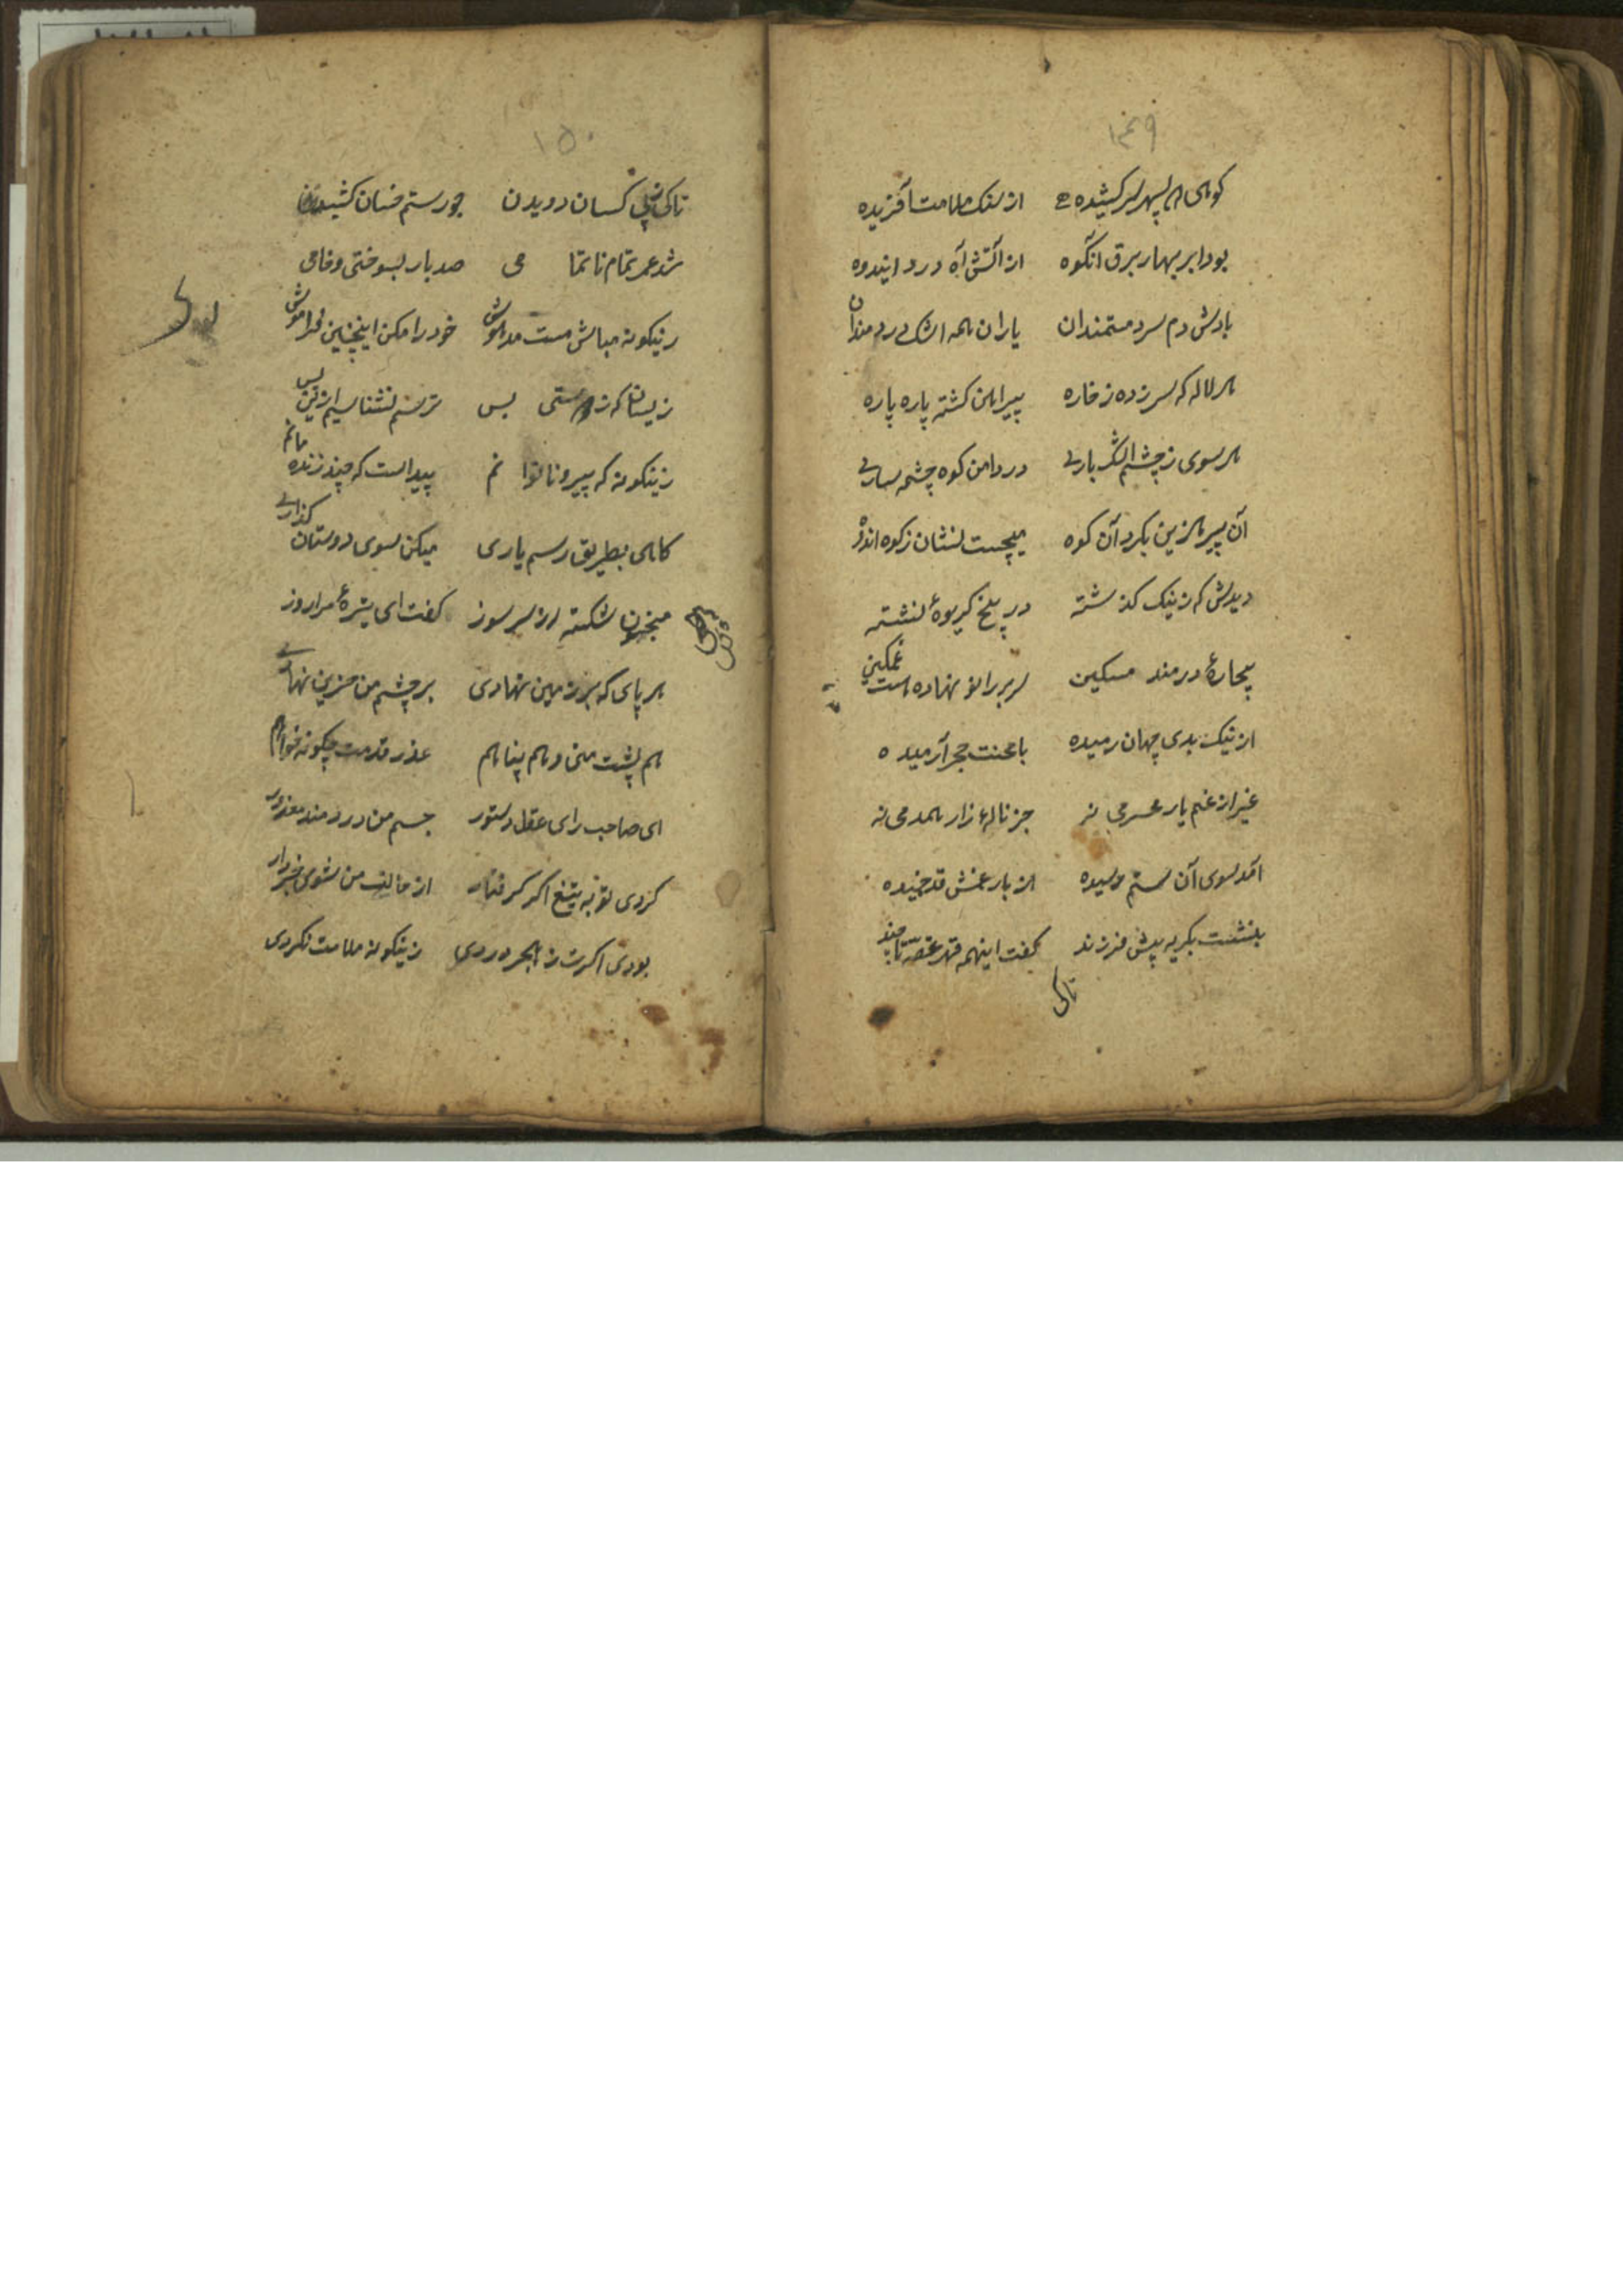 ۱۴۹
کوهی بسپهر سر کشیده از سنک ملامت آفریده
بود ابر بهار برق آنکوه از آتش آه درد اندوه
بادش دم سرد مستمندان یاران همه اشک دردمندان
هر لاله که سر زده ز خاره پیراهن کشته پاره پاره
هر سوی ز چشم اشکباری در دامن کوه چشمه ساری
آن پیر حزین بکرد آن کوه میجست نشان ز کوه اندوه
دیدش که ز نیک کذشته در بیخ کریوهٔ نشسته
بیچارهٔ درمند مسکین سر بر زانو نهاده است غمکین
از نیک بدی جهان رمیده با محنت هجر آرمیده
غیر از غم یار محرمی نه جز نالهٔ زار همدمی نه
آمد بسوی آن ستم رسیده از بار غمش قد خمیده
بنشست بکریه پیش فرزند کفت اینهمه قهر غصه تا چند
تاکی
۱۵۰
تاکی پی کسان دویدن جور ستم خسان کشیدن
شد عمر تمام ناتمامی صد بار بسوختی و خامی
زینکونه مباش مست مدهوش خود را مکن اینچنین فراموش
زینسان که ز مستی پس ترسم نشناسیم ازین پس
زینکونه که پیر و ناتوانم پیداست که چند زنده مانم
کاهی بطریق رسم یاری میکن بسوی دوستان کذاری
مجنون شکسته از سر سوز کفت ای تیرهٔ مرا روز
هر پای که بر زمین نهادی بر چشم من حزین نهادی
هم پشت منی و هم پناهم عذر قدمت چکونه خواهم
ای صاحب رای عقل دستور جسم من دردمند معذور
کردی تو به تیغ اکر کرفتار از حالت من شوی خبردار
بودی اکرت ز هجر دردی زینکونه ملامت نکردی